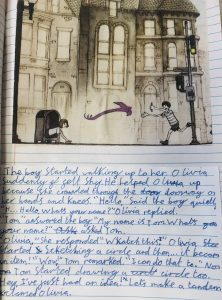 The boy started walking up to her. Olivia
suddenly felt shy. He helped Olivia up
because she crawled through the doorway on
her hands and knees. "Hello" said the boy quietly
"... Hello. Whats your name?" Olivia replied.
Ian" answered the boy. "My name is Ian. Whats
your name?" asked Ian.
Olivia," she responded" Watch this!" Olivia
started sketching a circle and then... it became
"Wow," Ian remarked." I can do that to." Now
Ian Started drawing a circle too.
Hey I've just had an idea!" Lets make a lantern
claimed Olivia.